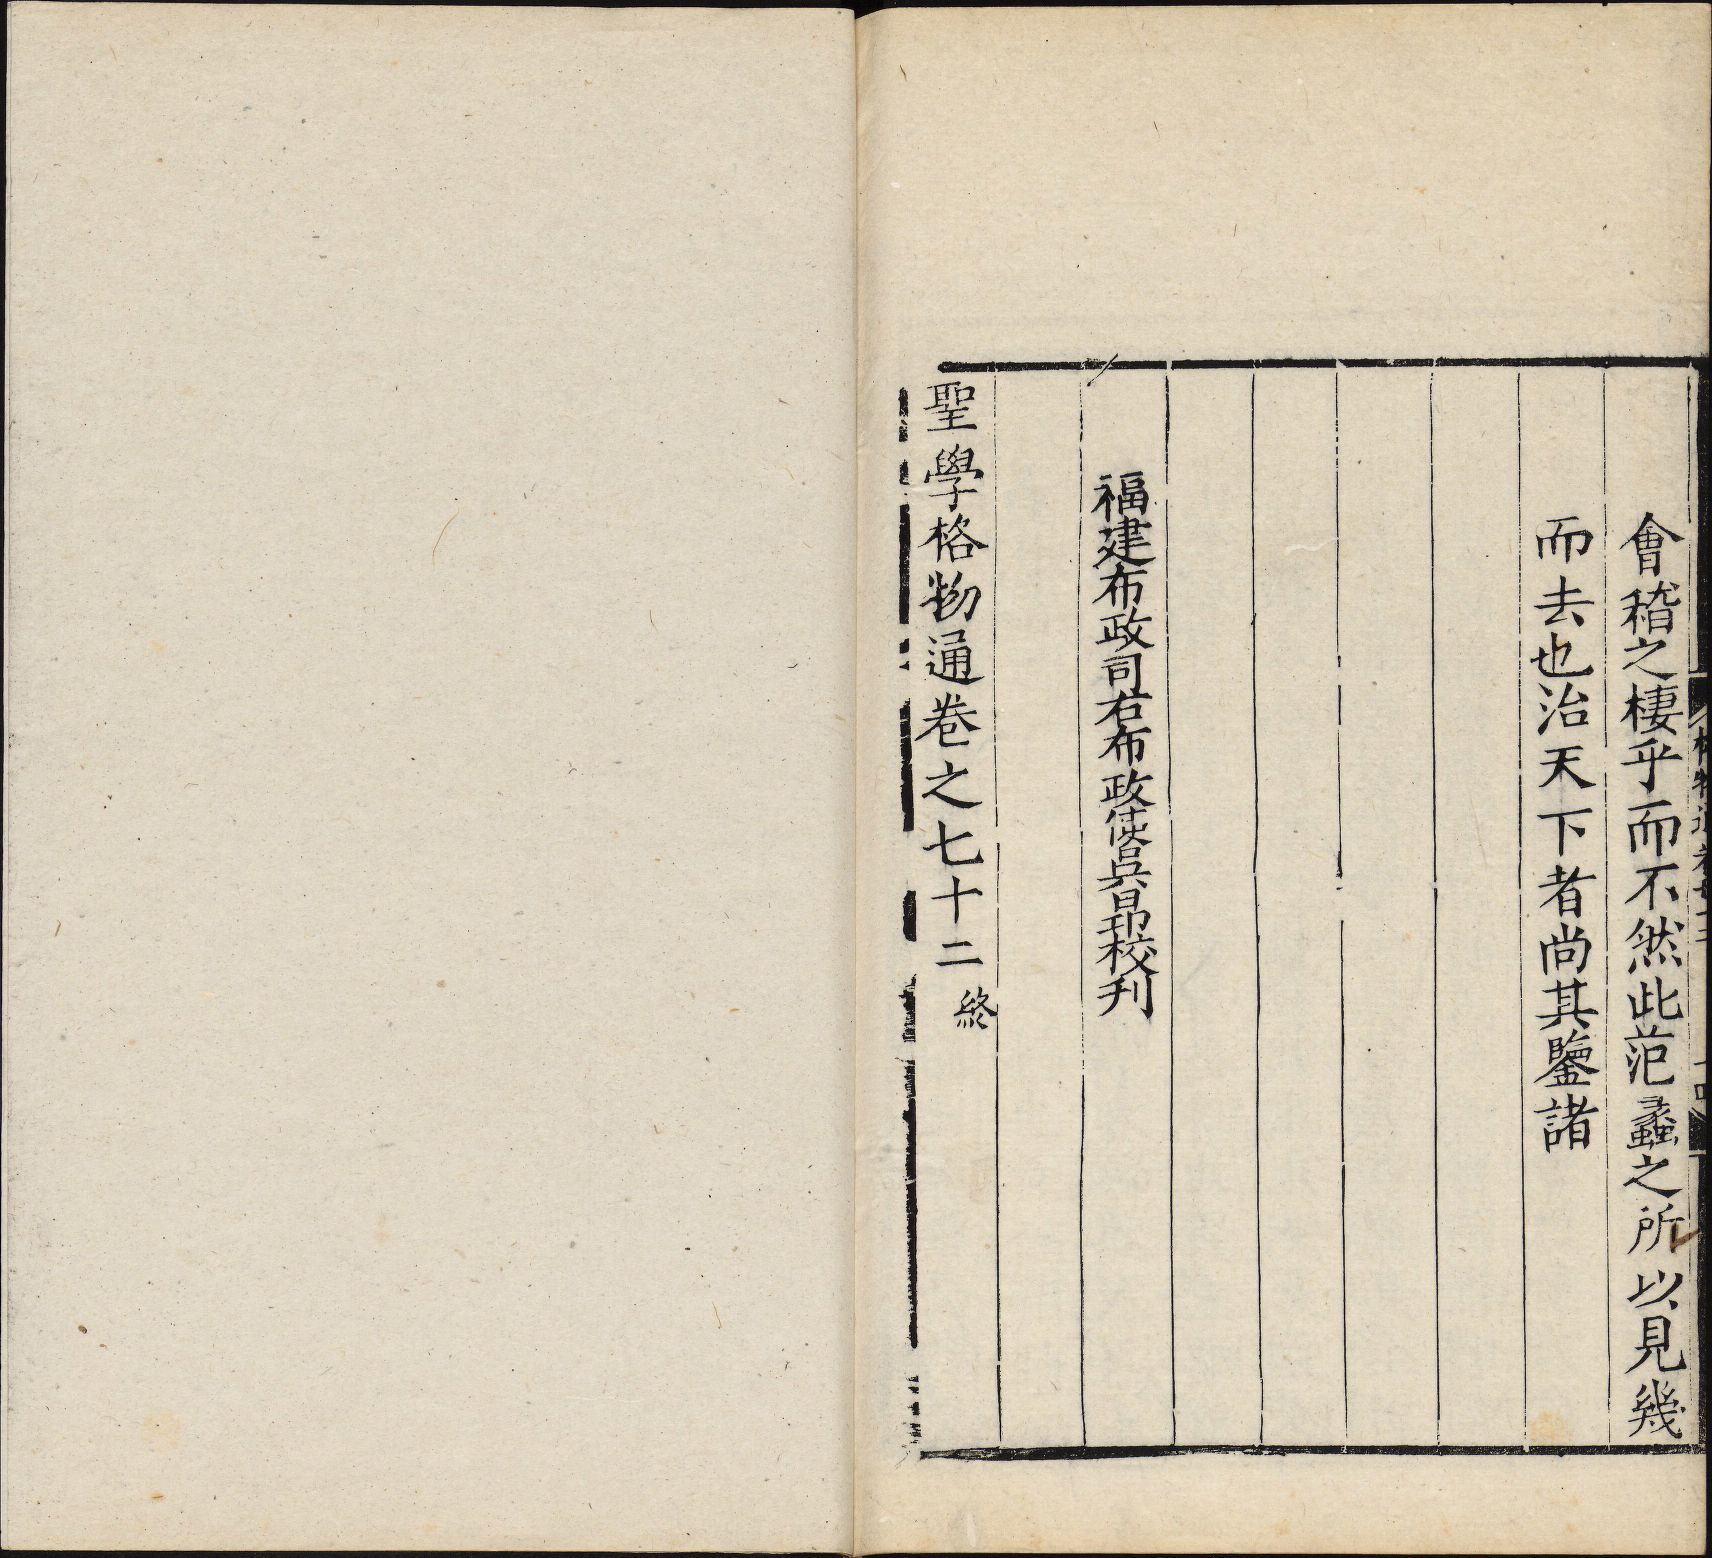 會稽之棲乎而不然此范蠡之所以見幾
而去也治天下者尚其鑒諸
福建布政司右布政使臣吳昂校刊
聖學格物通卷之七十二 終